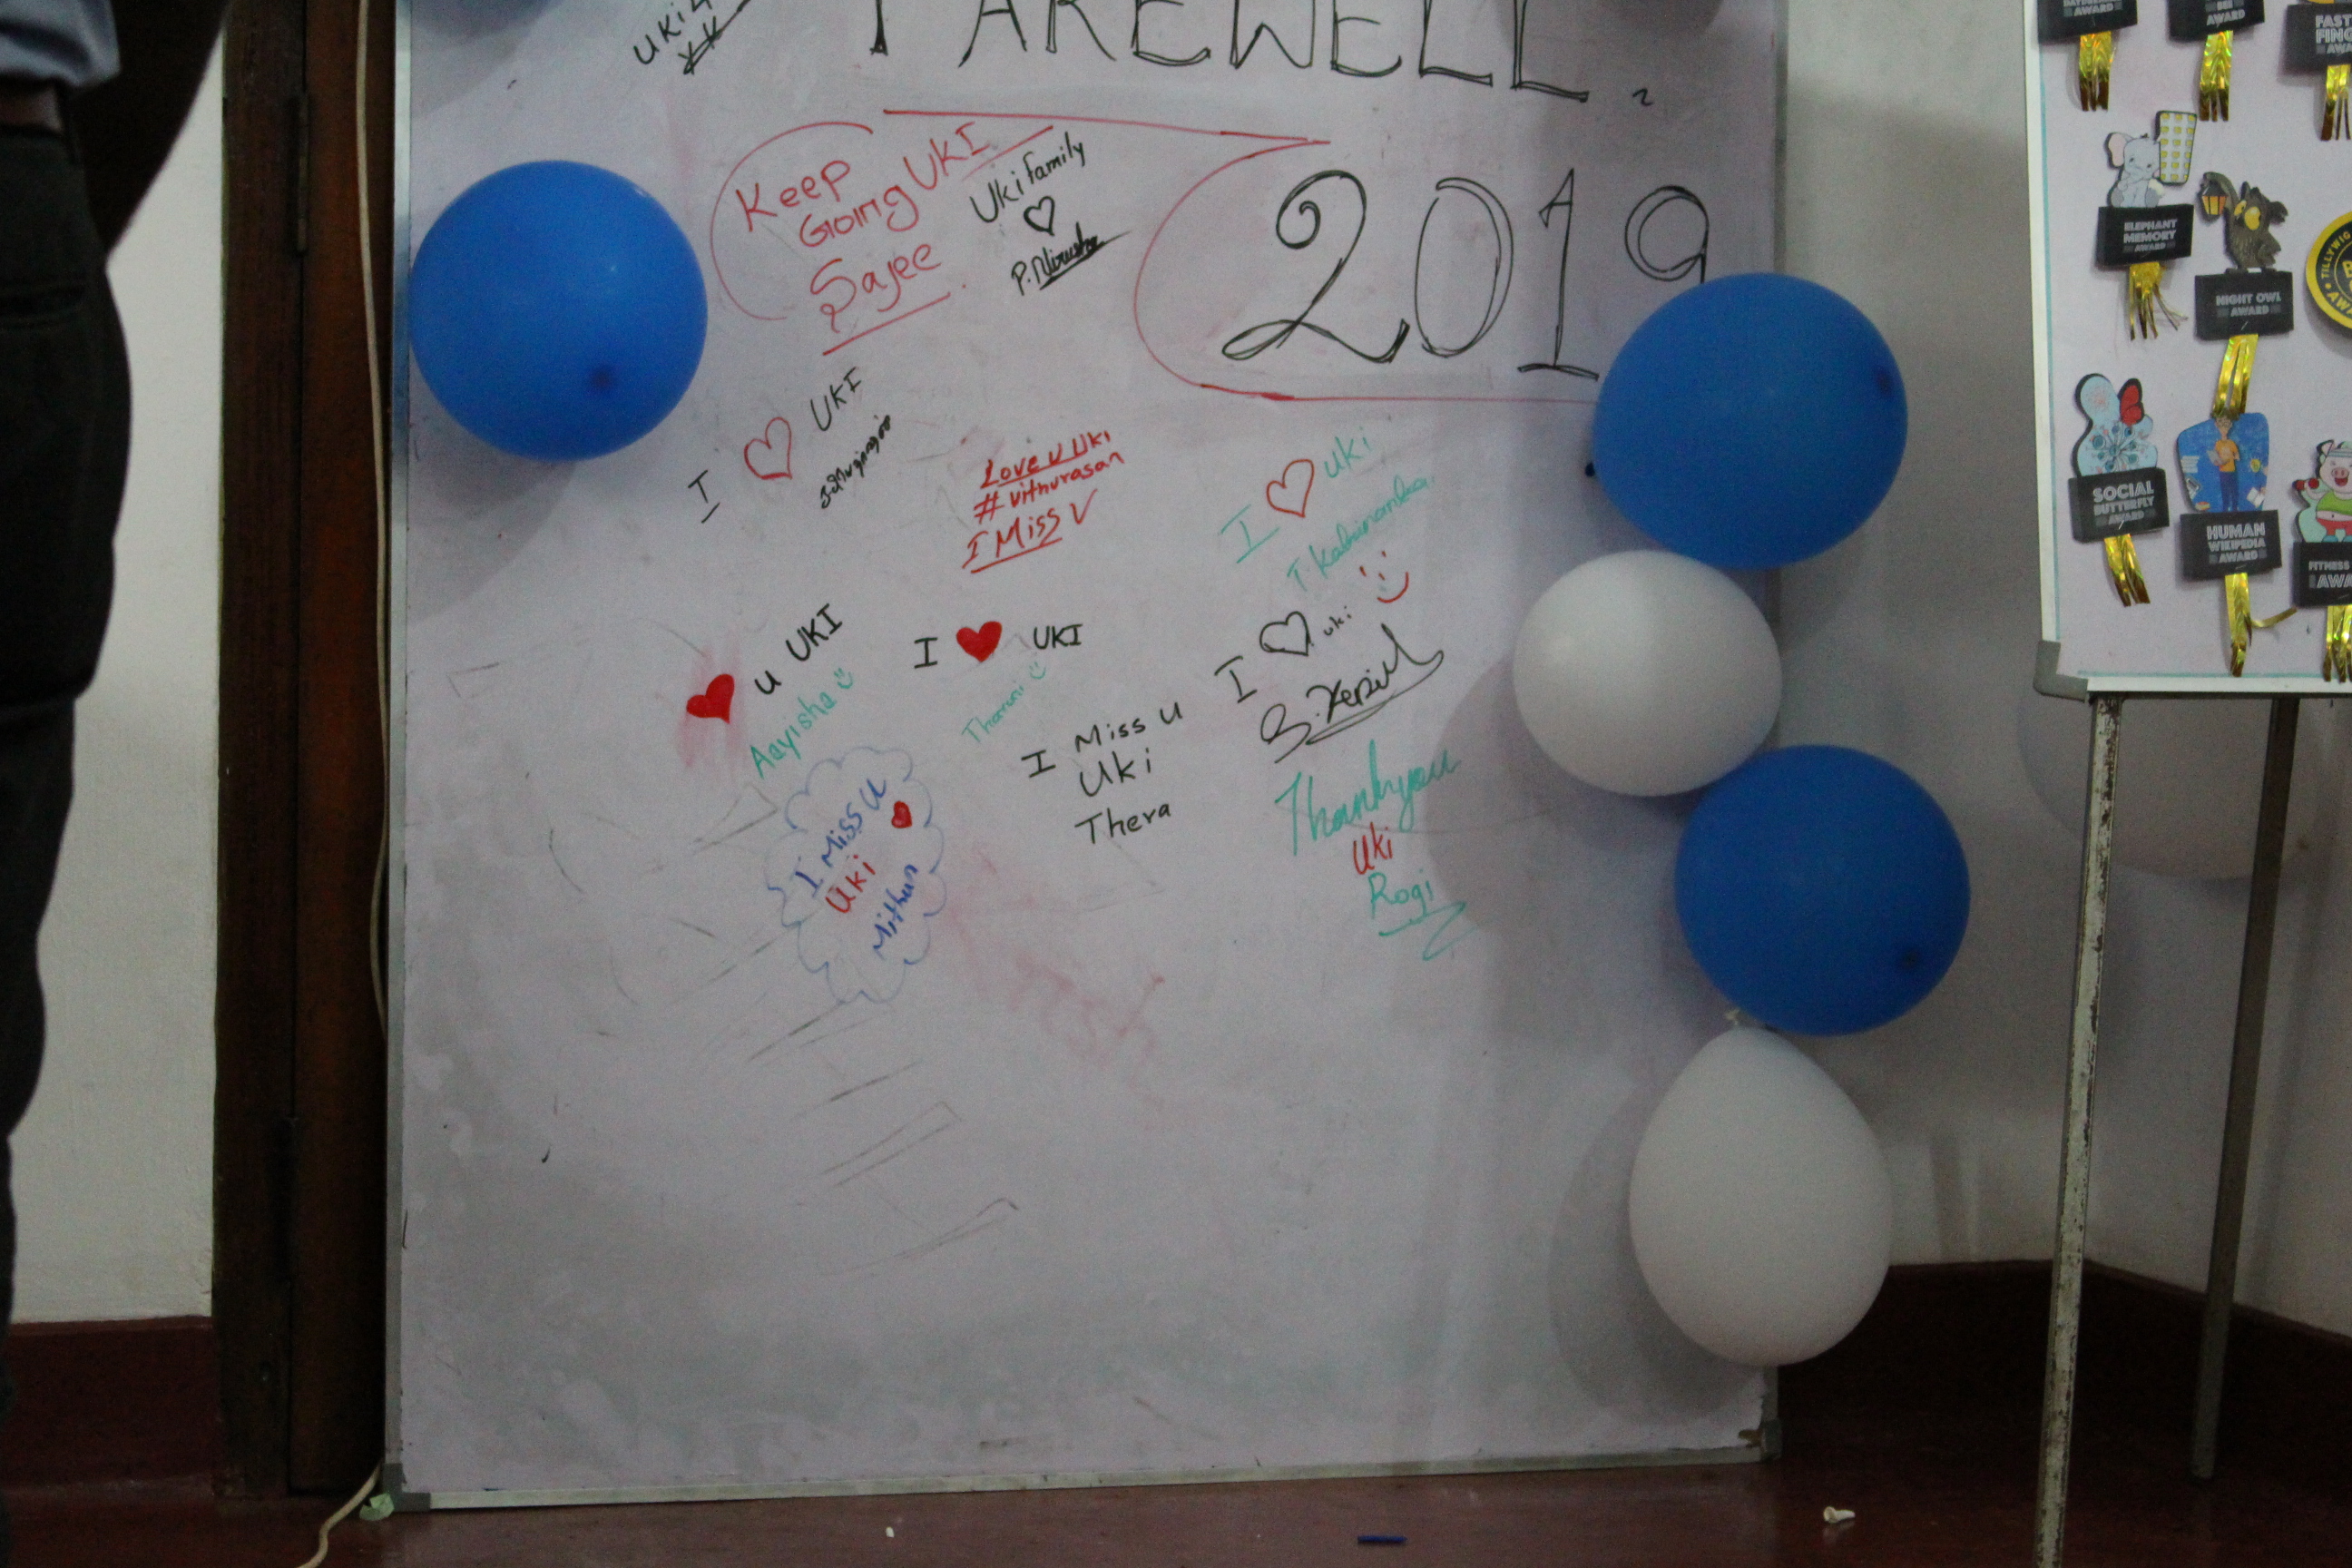 FAREWELL
2019
Keep
Going UKI
Sajee
Uki family
I UKI
Love u Uki
#vithurasan
I Miss V
I uki
U UKI
Aayisha
I UKI
Tharuni
I uki
I Miss U
Uki
Thera
I Miss U
Uki
Mithun
Thankyou
Uki
Rogi
AWARD
AWARD
FAST
ELEPHANT
MEMORY
AWARD
NIGHT OWL
AWARD
SOCIAL
BUTTERFLY
AWARD
HUMAN
WIKIPEDIA
AWARD
FITNESS